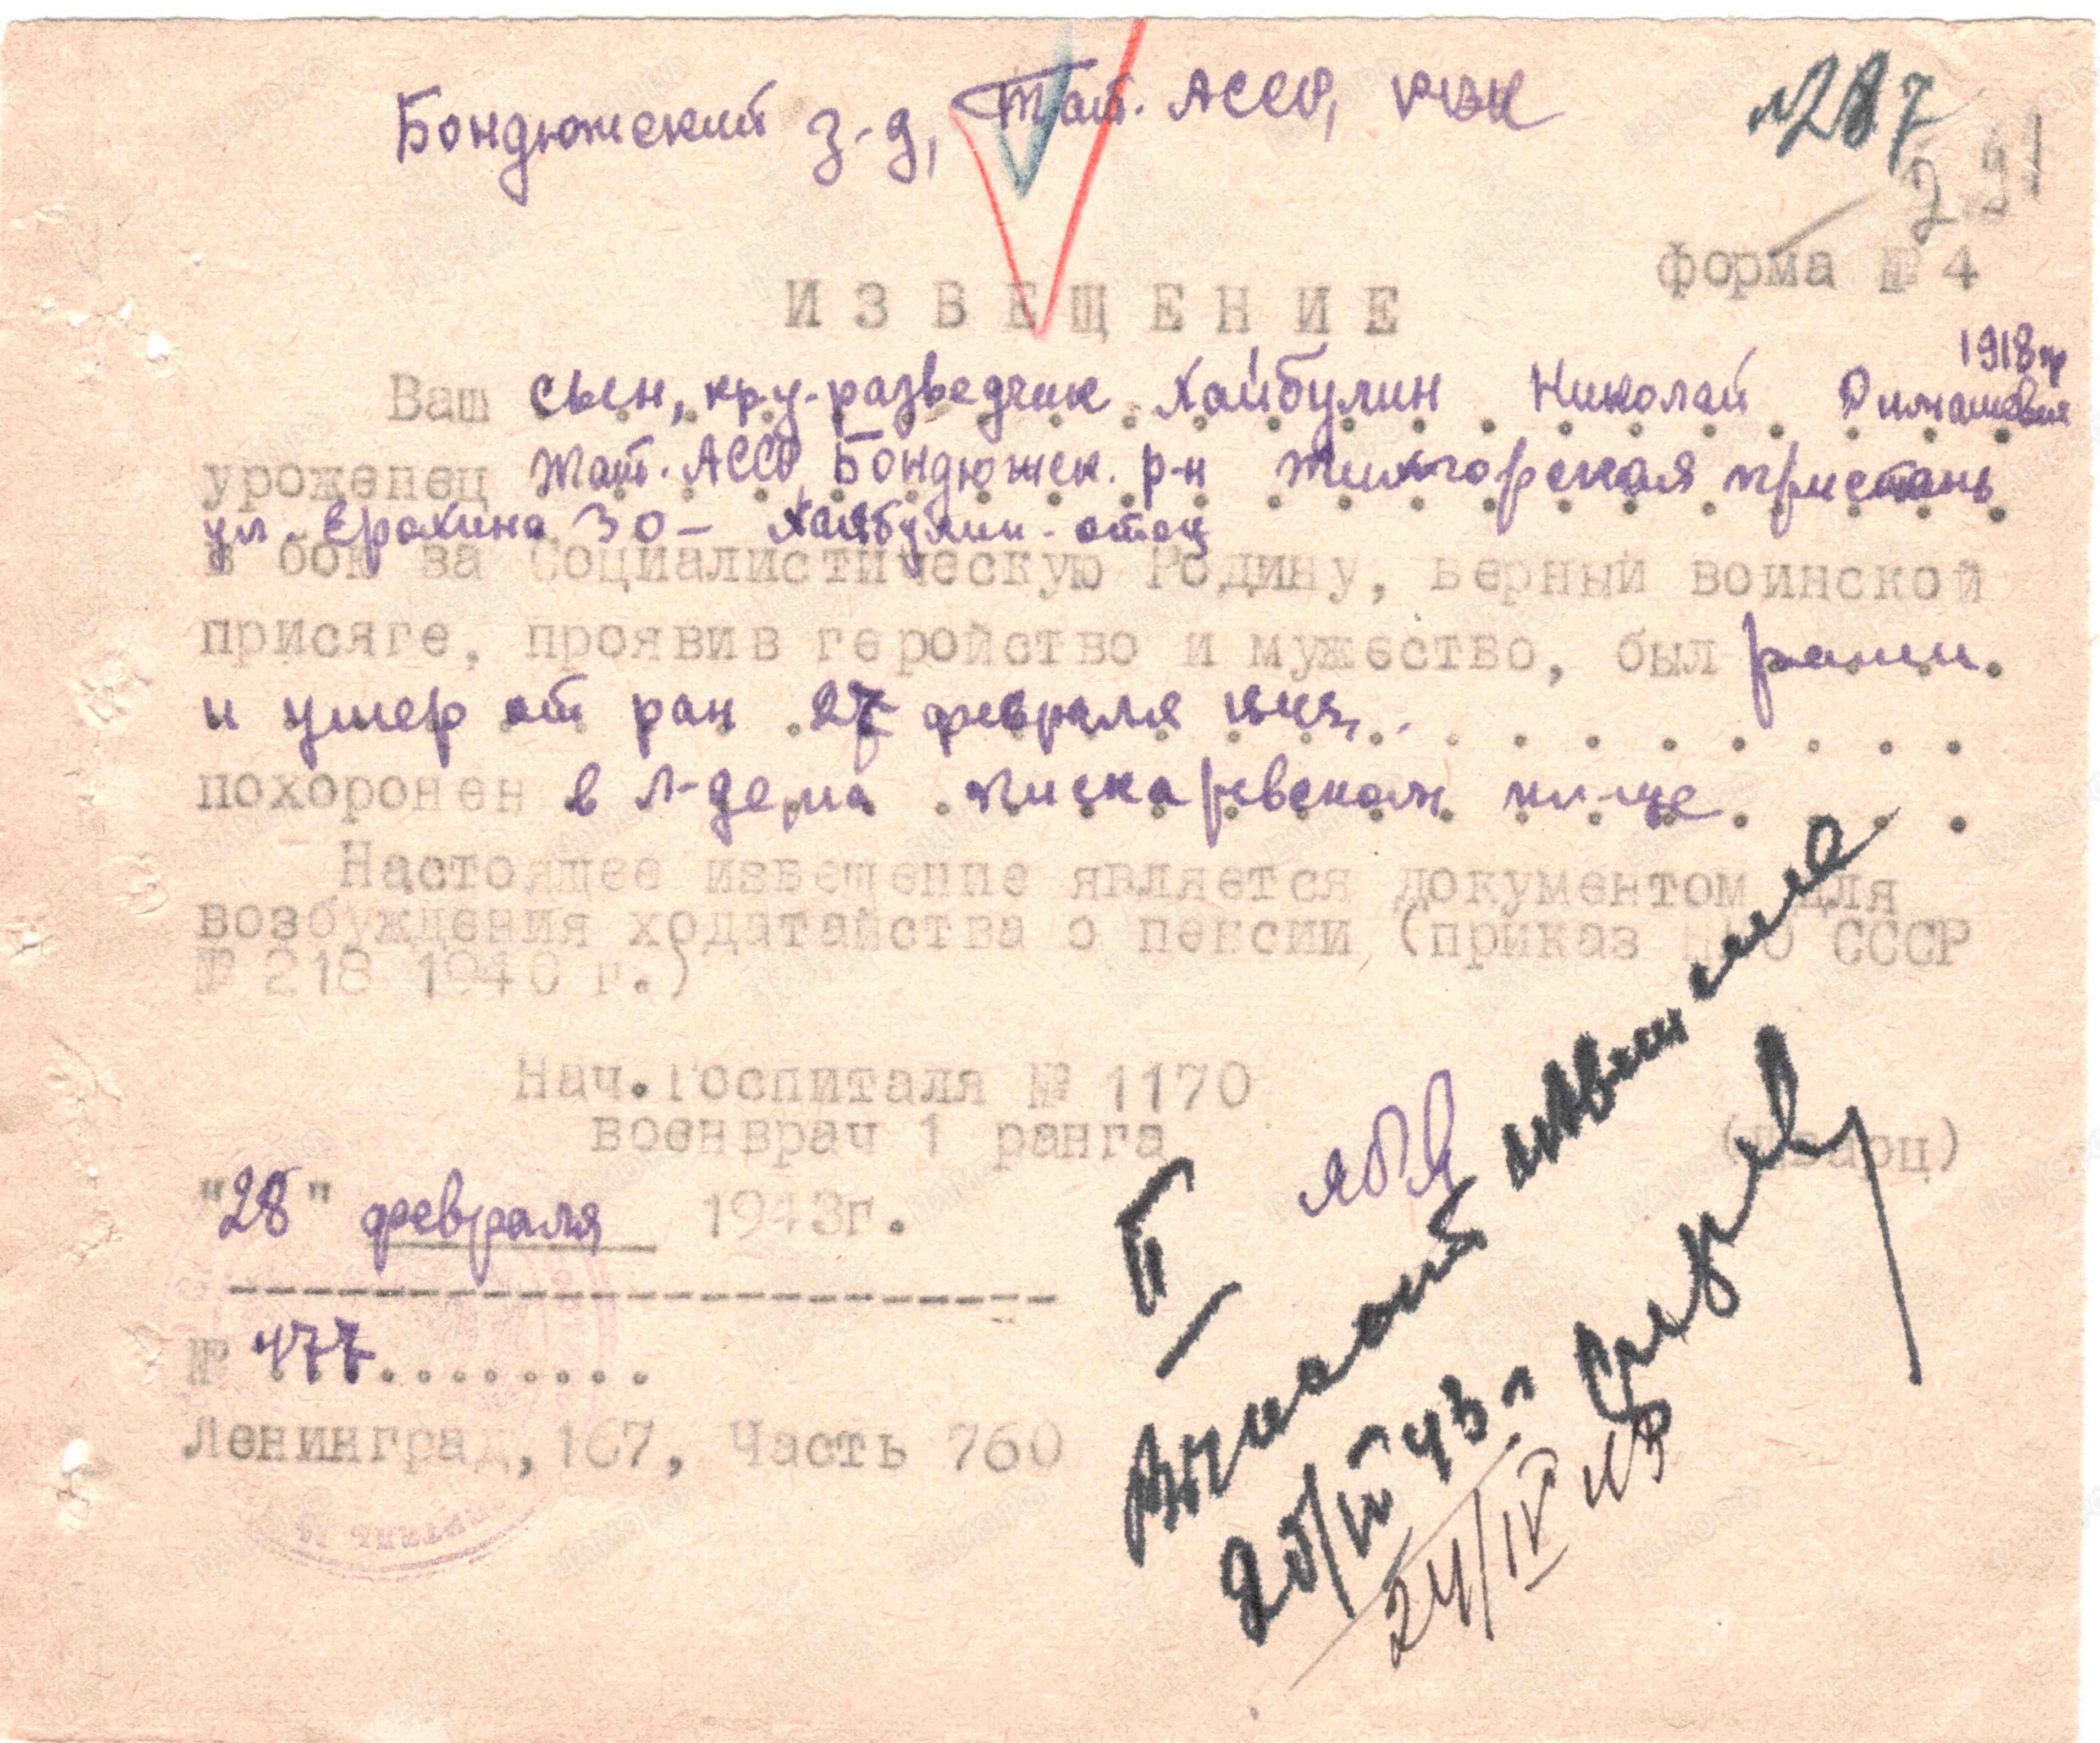 Бондюжский з-д, Тат. АССР, РВК
№ 287
291
форма № 4
ИЗВЕЩЕНИЕ
1918 гр
Ваш сын, кр-ц-разведчик Хайбулин Николай
уроженец Тат. АССР Бондюжск. р-н Тихогорская пристань
ул. Ерохина 30 – Хайбулин - отец
в бою за Социалистическую Родину, верный воинской
присяге, проявив геройство и мужество, был ранен.
и умер от ран 27 февраля 1943 г.
похоронен в Л-де, на Пискаревском кл-ще
Настоящее извещение является документом для
возбуждения ходатайства о пенсии (приказ НКО СССР
№ 218 1940 г.)
Нач.Госпиталя № 1170
военврач 1 ранга
"28" февраля 1943г.
№ 477........
Ленинград, 167, Часть 760
II
Выслать извещение
20/IV 43 г
24/IV 43